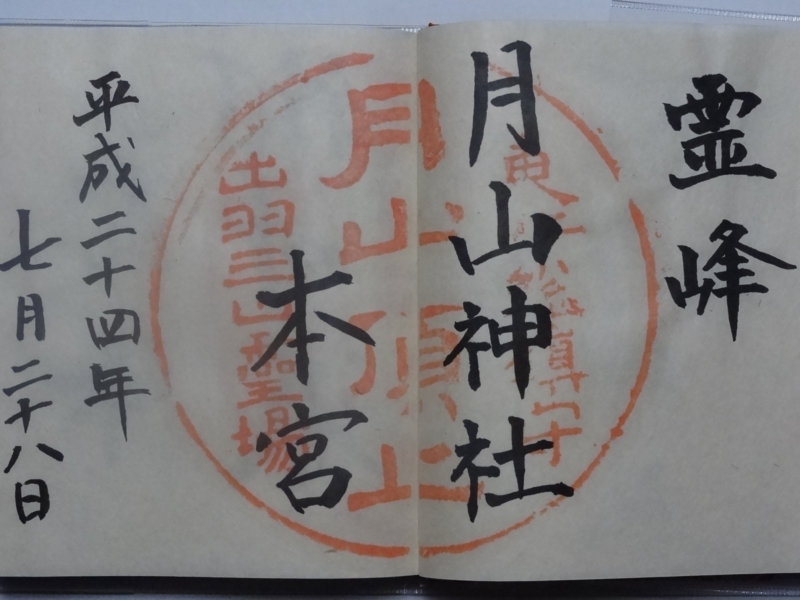 霊峰
月山神社
本宮
平成二十四年
七月二十八日
月山頂上
出羽三山聖場